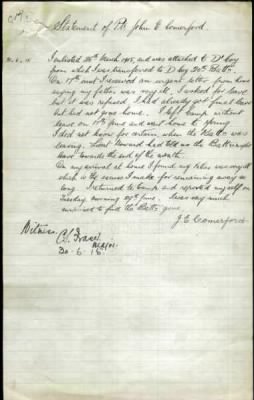 Statement of Pte John E Comerford.
I enlisted 28th March 1915, and was attached to D Coy
from which I was transferred to D Coy 20th Battn.
On 17th inst I received an urgent letter from home
saying my father was very ill. I asked for leave
but it was refused, I had already got final leave
but did not go home. I left Camp without
leave on 17th June and went home to
I did not know for certain when the Battn was
leaving. Lieut Howard had told us the Battn might
leave towards the end of the month.
On my arrival at home I found my father was very ill
which is the excuse I make for remaining away so
long. I returned to Camp and reported myself on
Tuesday morning 29th June. I was very much
surprised to find the Battn gone.
J E Comerford
Witness
C.S. Fraser
Major
30-6-15